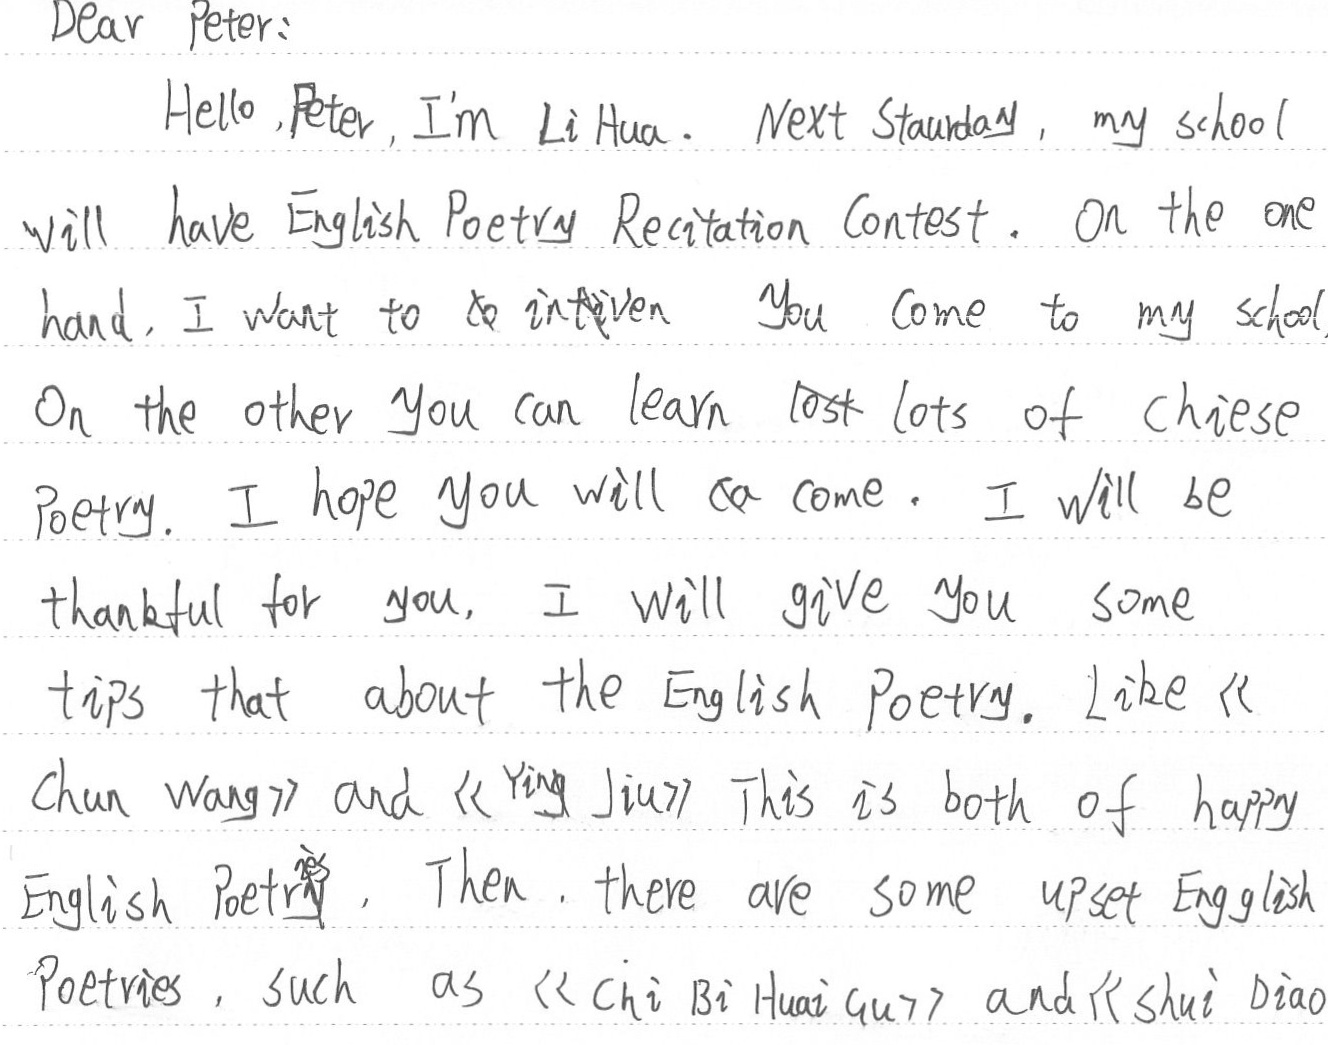 Dear Peter:
Hello, Peter, I'm Li Hua. Next Staurday, my school
will have English Poetry Recitation Contest. On the one
hand, I want to intiven you come to my school.
On the other you can learn lots of chiese
Poetry. I hope you will come. I will be
thankful for you, I will give you some
tips that about the English Poetry. Like 《
Chun Wang》 and 《Ying Jiu》 This is both of happy
English Poetries, Then, there are some upset Engglish
Poetries, such as 《Chi Bi Huai Gu》 and《Shui Diao